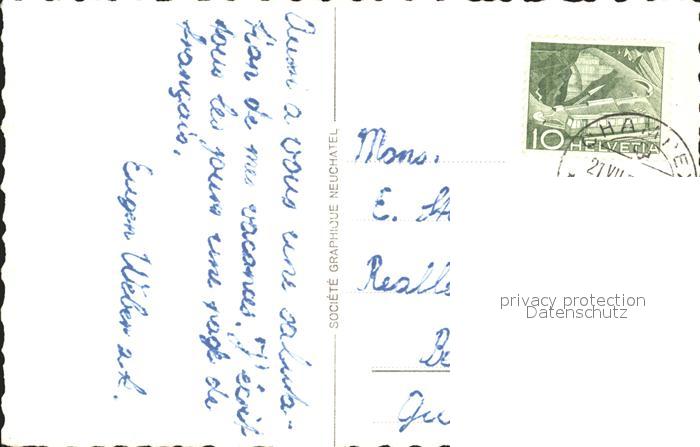 Aussi a vous une saluta-
tion de mes vacances. J'écris
tous les jours une page de
français.
Eugen Weber
SOCIÉTÉ GRAPHIQUE NEUCHATEL
Mons.
E. St
Reall
Be
10 HELVETIA
27 VII
privacy protection
Datenschutz